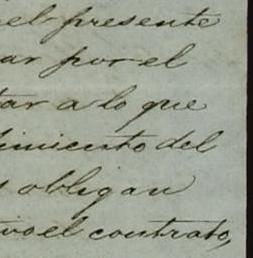 el presente
ar por el
tar a lo que
dimiento del
s obligan
tivo el contrato,